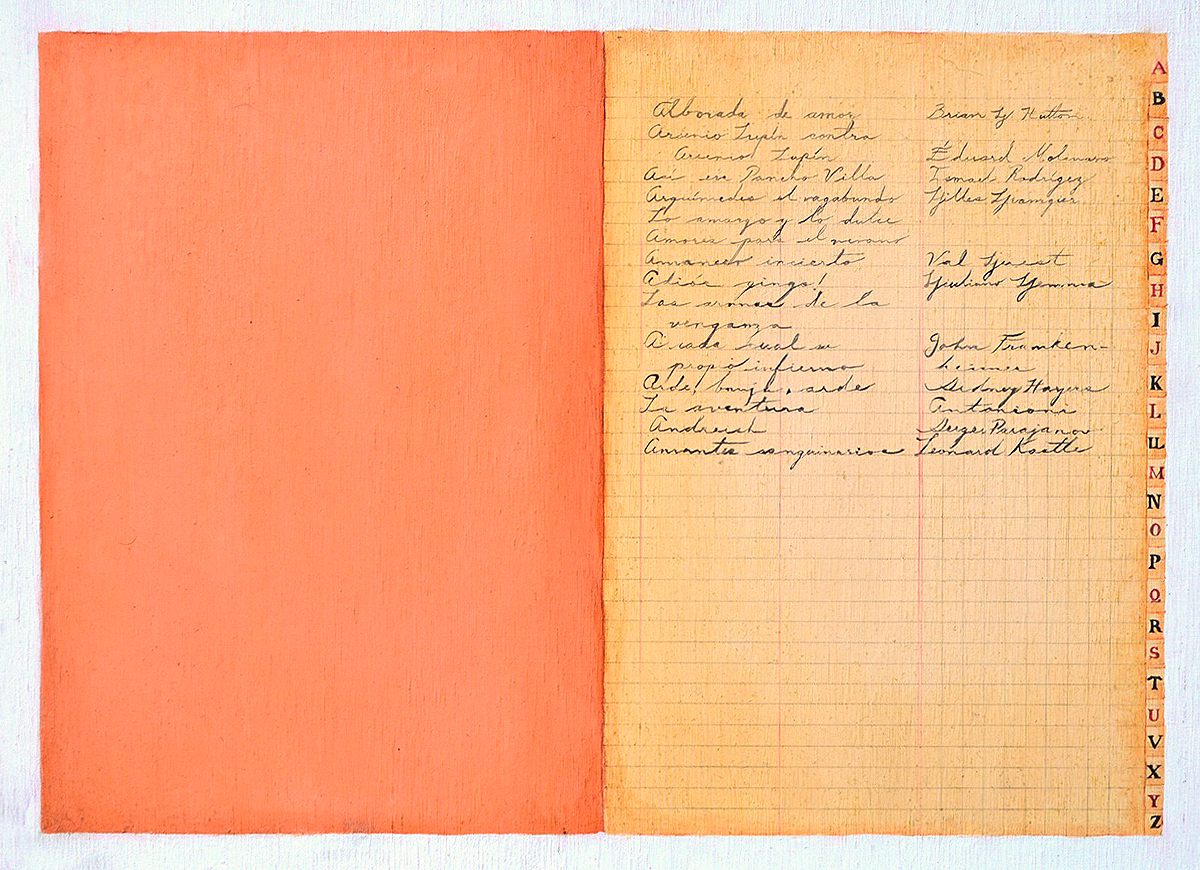 Alborada de amor Brian G Hutton
Arsenio Lupín contra
Arsenio Lupín Éduard Molinaro
Así era Pancho Villa Ismael Rodrígez
Arquímedes el vagabundo Gilles Grangier
Lo amargo y lo dulce
Amores para el verano
Amanecer incierto Val Guest
Adiós gringo! Giuliano Gemma
Las armas de la
venganza
A cada cual su John Franken-
propio infierno heimer
Arde, bruja, arde Sidney Hayers
La aventura Antonioni
Andreish Serge Parajanov
Amantes sanguinarios Leonard Kastle
A
B
C
D
E
F
G
H
I
J
K
L
LL
M
N
O
P
Q
R
S
T
U
V
X
Y
Z